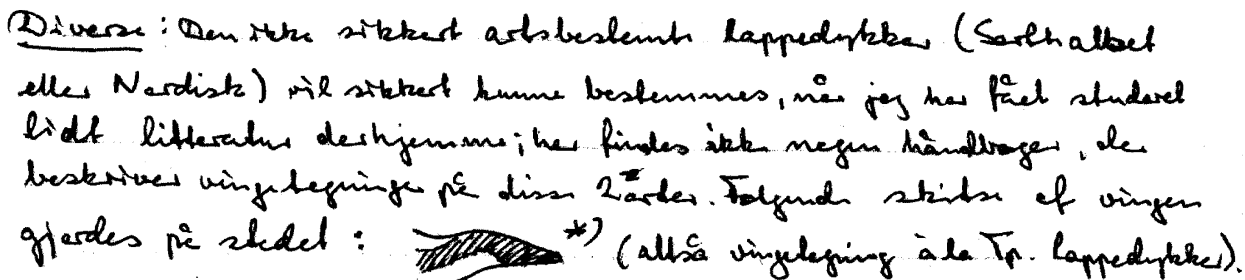 Diverse: Den ikke sikkert artsbestemte lappedykker (Sorthalset
eller Nordisk) vil sikkert kunne bestemmes, når jeg har fået studeret
lidt litteratur derhjemme; her findes ikke nogen håndbøger, der
beskriver vingetegninger på disse 2 arter. Følgende skitse af vingen
gjordes på stedet: *) (altså vingetegning à la Tp. lappedykker).